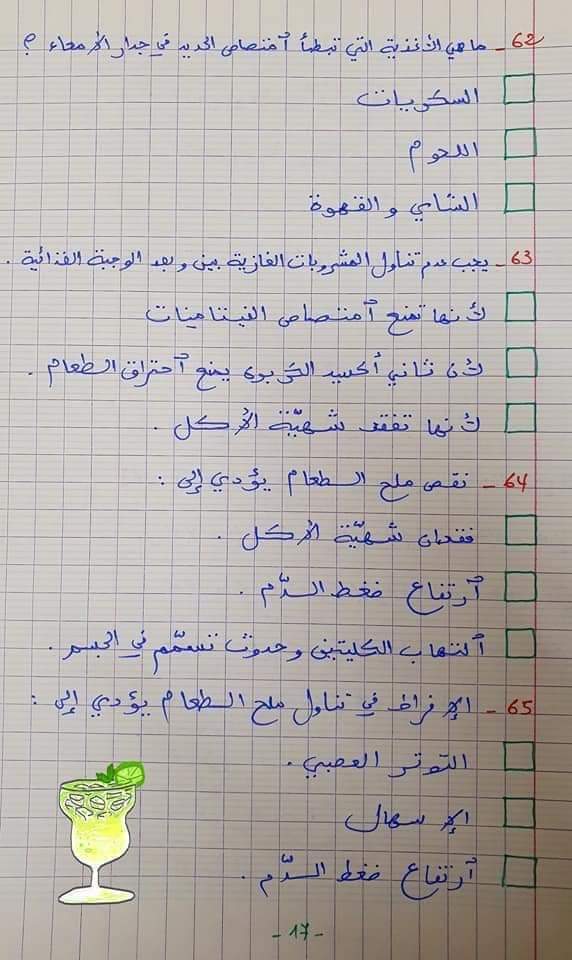 62 - ما هي الأغذية التي تبطأ امتصاص الحديد في جدار الأمعاء ؟
السكريات
اللحوم
الشاي و القهوة
63 - يجب عدم تناول المشروبات الغازية بين و بعد الوجبة الغذائية .
لأنها تمنع امتصاص الفيتامينات
لأن ثاني أكسيد الكربون يمنع احتراق الطعام .
لأنها تفقد شهيّة الأكل .
64 - نقص ملح الطعام يؤدي إلى :
فقدان شهيّة الأكل .
ارتفاع ضغط الدّم .
التهاب الكليتين و حدوث تسمّم في الجسم .
65 - الإفراط في تناول ملح الطعام يؤدي إلى :
التوتر العصبي .
الإسهال
ارتفاع ضغط الدّم .
- 17 -